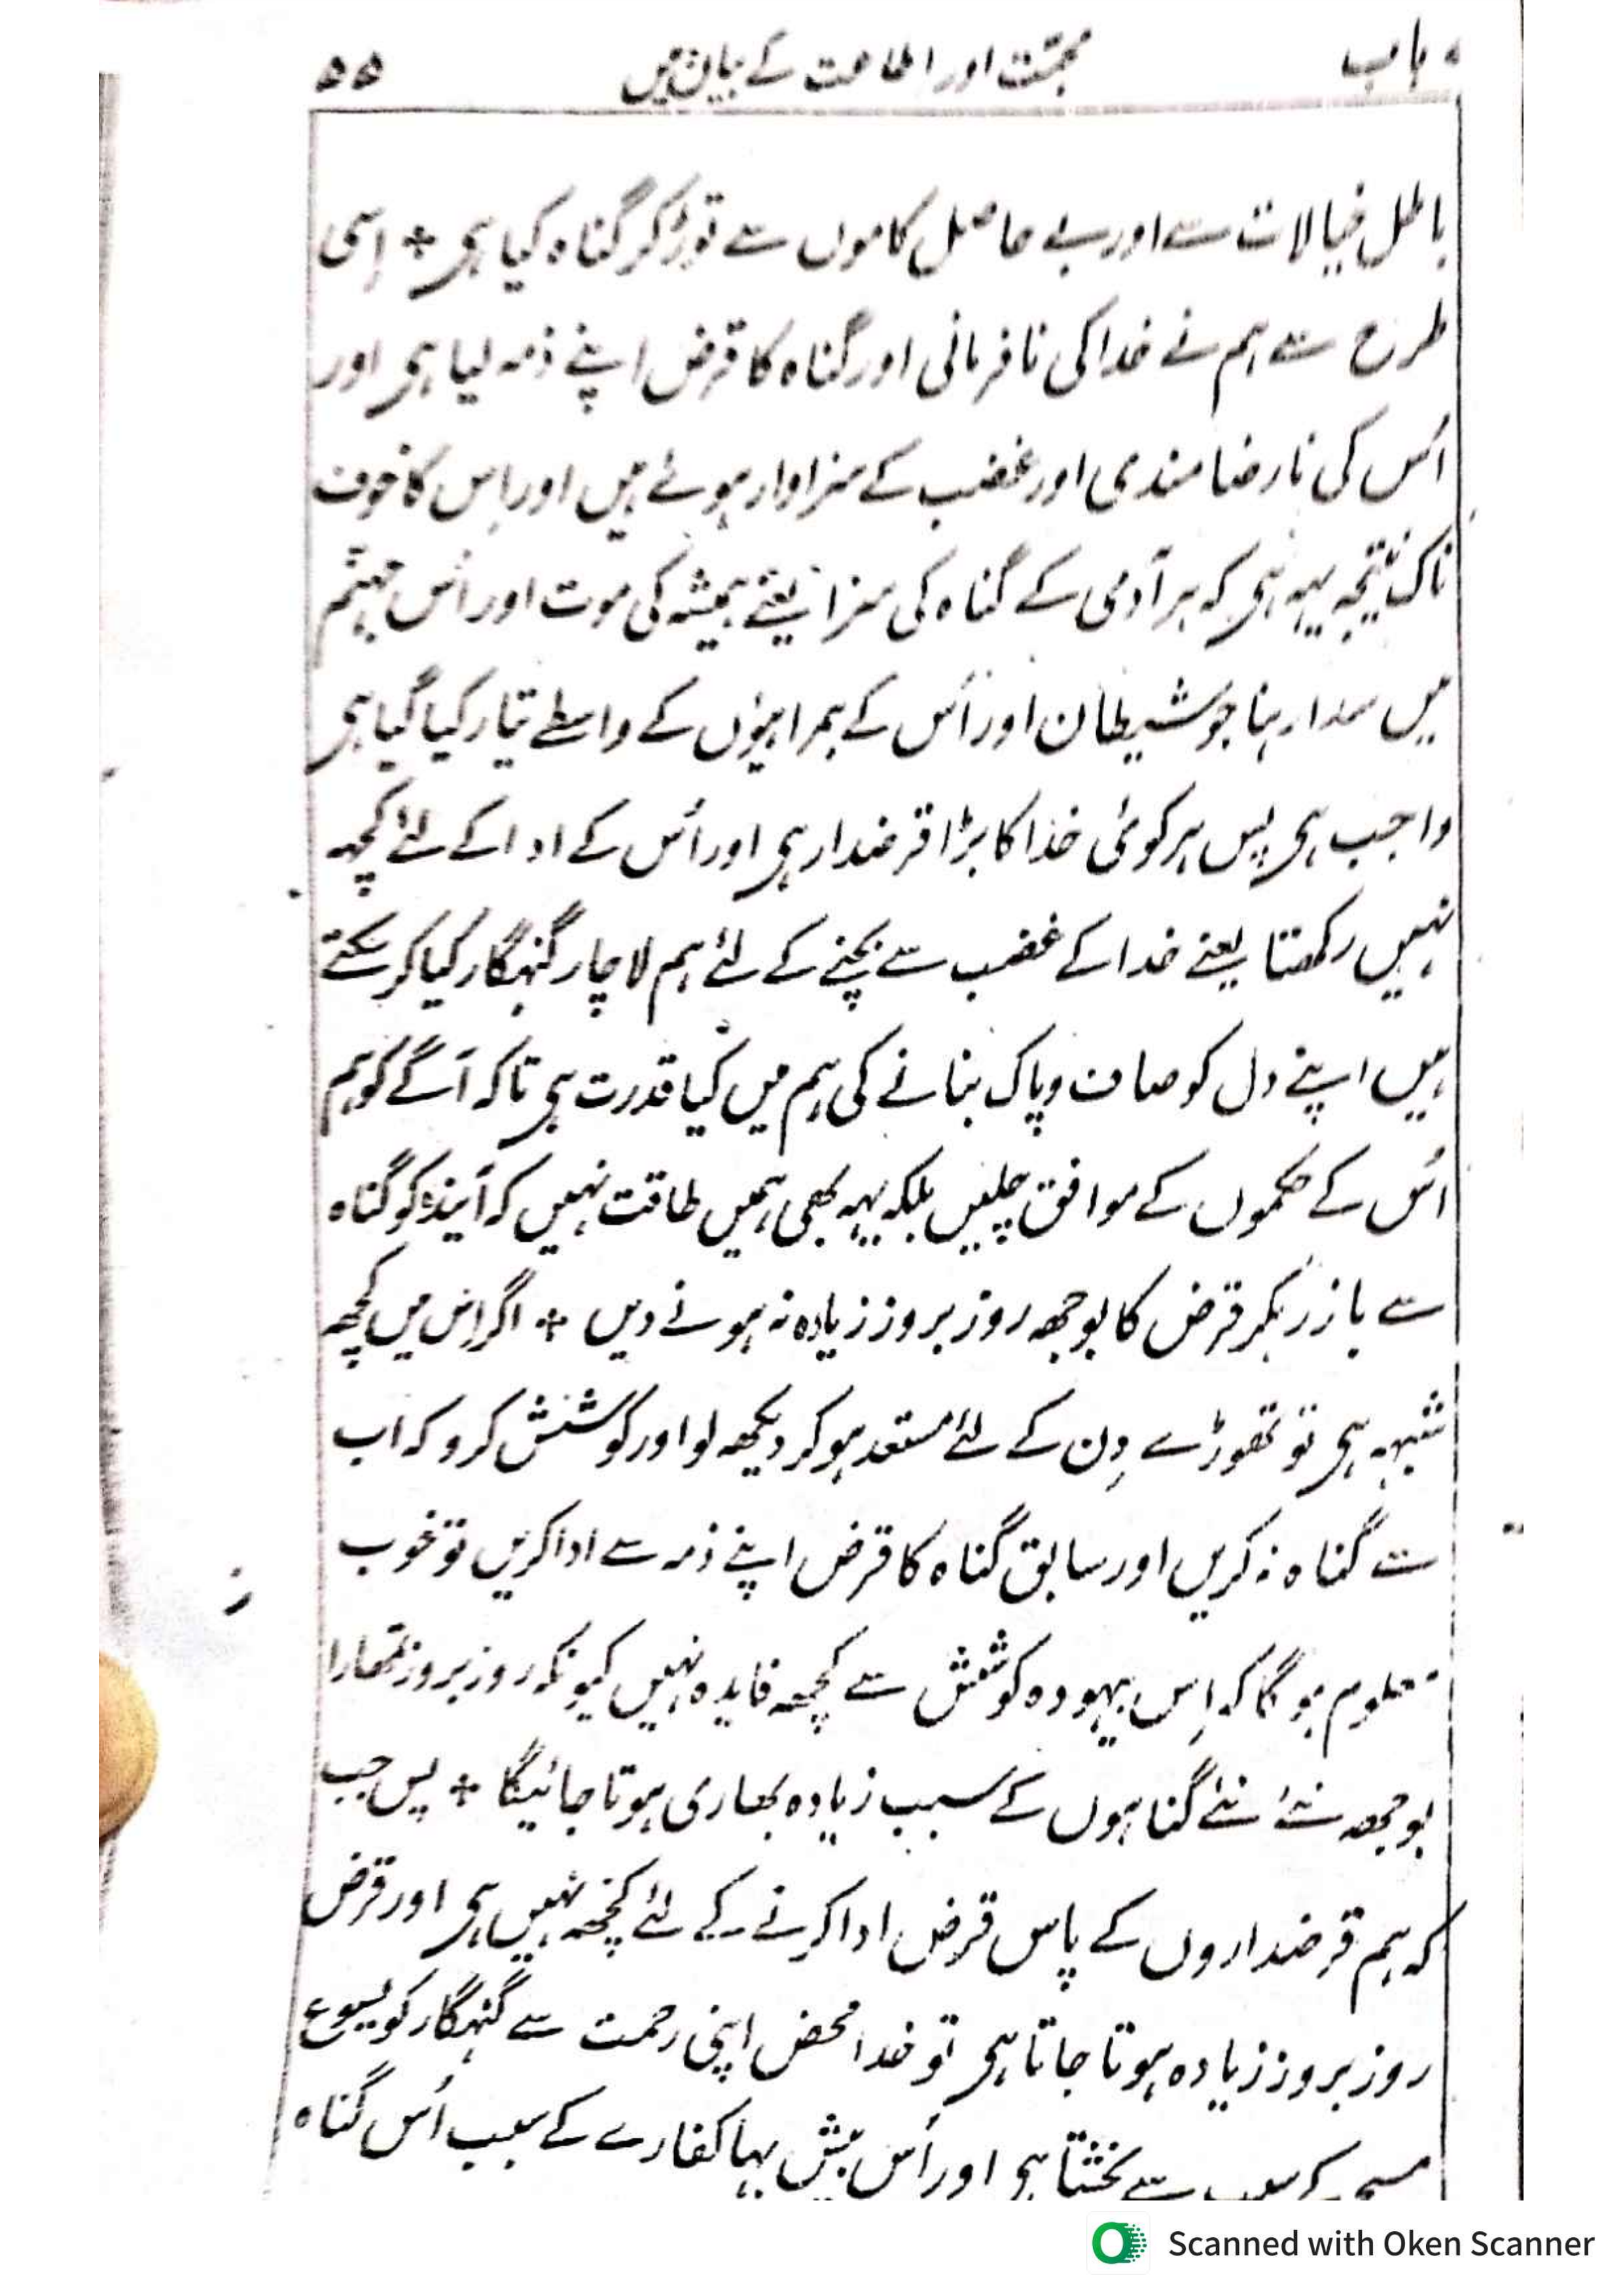 باب محبّت اور اطاعت کے بیان میں ۵۵
باطل خیالات سے اور بے حاصل کاموں سے توڑ کر گناہ کیا ہی + اِسی
طرح سے ہم نے خدا کی نافرمانی اور گناہ کا قرض اپنے ذمہ لیا ہی اور
اُس کی نارضامندی اور غضب کے سزاوار ہوئے ہیں اور اِس کا خوف
ناک نتیجہ یہہ ہی کہ ہر آدمی کے گناہ کی سزا یعنے ہمیشہ کی موت اور اُس جہنّم
میں سدا رہنا جو شیطان اور اُس کے ہمراہیوں کے واسطے تیّار کیا گیا ہی
واجب ہی پس ہر کوئی خدا کا بڑا قرضدار ہی اور اُس کے ادا کے لئے کچھہ
نہیں رکھتا یعنے خدا کے غضب سے بچنے کے لئے ہم لاچار گنہگار کیا کر سکتے
ہیں اپنے دل کو صاف و پاک بنانے کی ہم میں کیا قدرت ہی تاکہ آگے کو ہم
اُس کے حکموں کے موافق چلیں بلکہ یہہ بھی ہمیں طاقت نہیں کہ آیندہ کو گناہ
سے باز رہکر قرض کا بوجھہ روز بروز زیادہ نہ ہونے دیں + اگر اِس میں کچھہ
شبہہ ہی تو تھوڑے دِن کے لئے مستعد ہو کر دیکھہ لو اور کوشش کرو کہ اب
ت گناہ نہ کریں اور سابق گناہ کا قرض اپنے ذمہ سے ادا کریں تو خوب
معلوم ہوگا کہ اِس بیہودہ کوشش سے کچھہ فایدہ نہیں کیونکہ روز بروز تمھارا
بوجھہ نئے نئے گناہوں کے سبب زیادہ بھاری ہوتا جائیگا + پس جب
کہ ہم قرضداروں کے پاس قرض ادا کرنے کے لئے کچھہ نہیں ہی اور قرض
روز بروز زیادہ ہوتا جاتا ہی تو خدا محض اپنی رحمت سے گنہگار کو یسوع
مسیح کے سبب سے بخشتا ہی اور اُس بیش بہا کفارے کے سبب اُس گناہ
Scanned with Oken Scanner